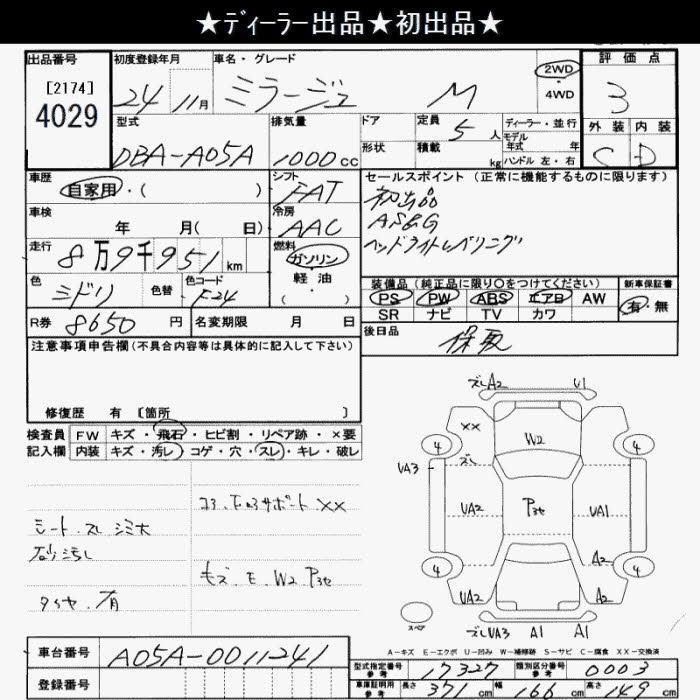 ★ディーラー出品★初出品★
出品番号
[2174]
4029
初度登録年月
24 11月
車名・グレード
ミラージュ M
2WD
・
4WD
評価点
3
型式
DBA-A05A
排気量
1000cc
ドア
形状
定員 5人
積載 kg
ディーラー・並行
モデル年式 年
ハンドル 左・右
外装 内装
C D
車歴
自家用・( )
シフト
FAT
セールスポイント(正常に機能するものに限ります)
初出品
AS&G
ヘッドライトレベリング
車検
年 月( 日)
冷房
AAC
走行
8万9千951km
燃料
ガソリン
軽油
・( )
色
ミドリ
色替
色コード
F24
装備品(純正品に限り○をつけてください)
PS PW ABS エアB AW
SR ナビ TV カワ
新車保証書
有・無
R券 8650円
名変期限 月 日
後日品
保取
注意事項申告欄(不具合内容等は具体的に記入して下さい)
修復歴 有 [箇所 ]
検査員
記入欄
FW キズ・飛石・ヒビ割・リペア跡・×要
内装 キズ・汚レ・コゲ・穴・スレ・キレ・破レ
コア.下回サポート ××
シート.スレ シミ大
砂汚し
キズ.E.W2 Pうせ
タイヤ.7月
ズレA2 U1
×× W2
4 ズレ 4
UA3
UA2 Pうせ UA1
A2
4 4
UA2 A2
スペア
ズレUA3 A1 A1
A-キズ E-エクボ U-凹み W-補修跡 S-サビ C-腐食 XX-交換済
車台番号 A05A-0011241
登録番号
型式指定番号 参考 17327
類別区分番号 参考 0003
車庫証明用 参考 長さ 371cm 幅 166cm 高さ 149cm